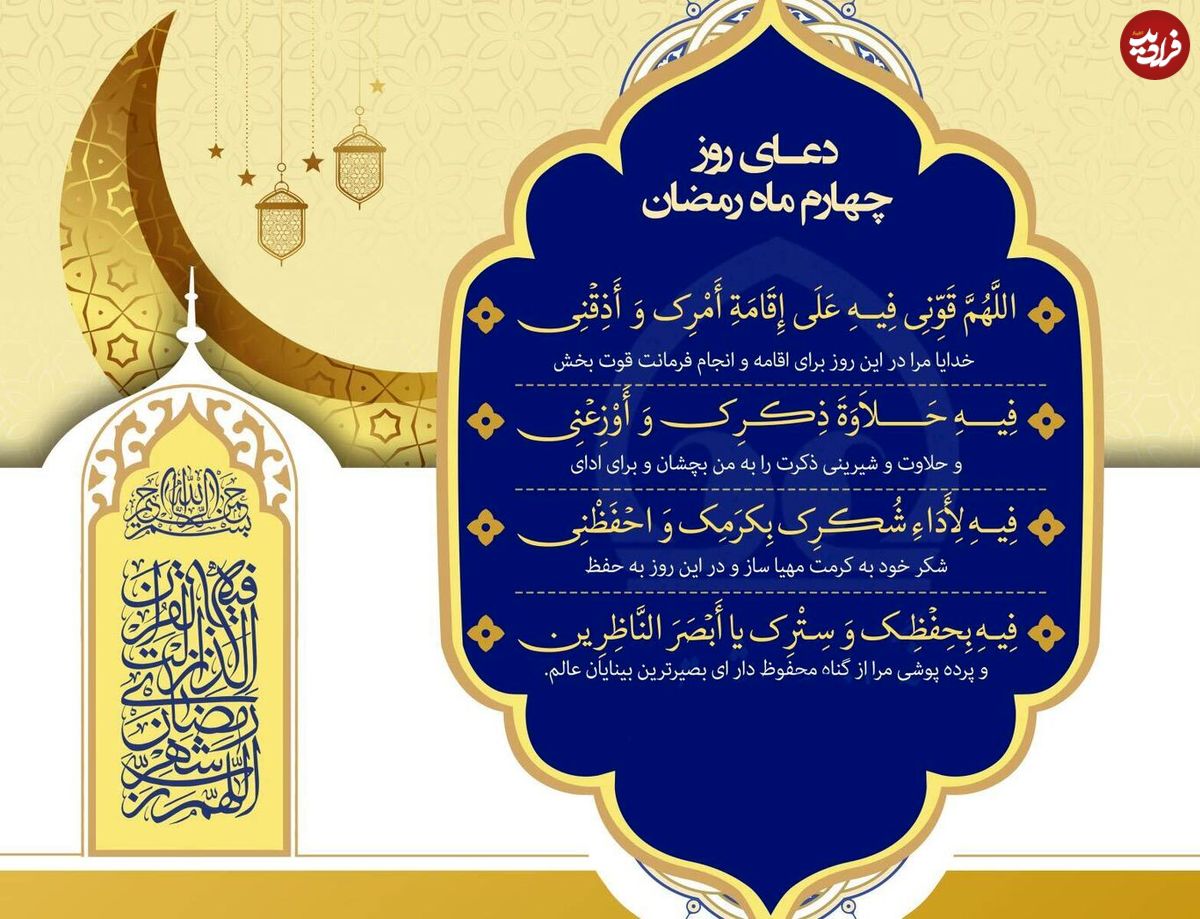 فرادید
دعـای روز
چهارم ماه رمضان
اللَّهُمَّ قَوِّنِی فِیـهِ عَلَی إِقَامَةِ أَمْرِکَ وَ أَذِقْنِی
خدایا مرا در این روز برای اقامه و انجام فرمانت قوت بخش
فِیـهِ حَـلاَوَةَ ذِکْـرِکَ وَ أَوْزِعْنِی
و حلاوت و شیرینی ذکرت را به من بچشان و برای ادای
فِیـهِ لِأَدَاءِ شُکْـرِکَ بِکَرَمِکَ وَ احْفَظْنِی
شکر خود به کرمت مهیا ساز و در این روز به حفظ
فِیـهِ بِحِفْظِکَ وَ سِتْرِکَ یا أَبْصَرَ النَّاظِرِین
و پرده پوشی مرا از گناه محفوظ دار ای بصیرترین بینایان عالم.
بسم الله الرحمن الرحیم
اللهم رب شهر
رمضان
الذی انزلت
فیه القرآن